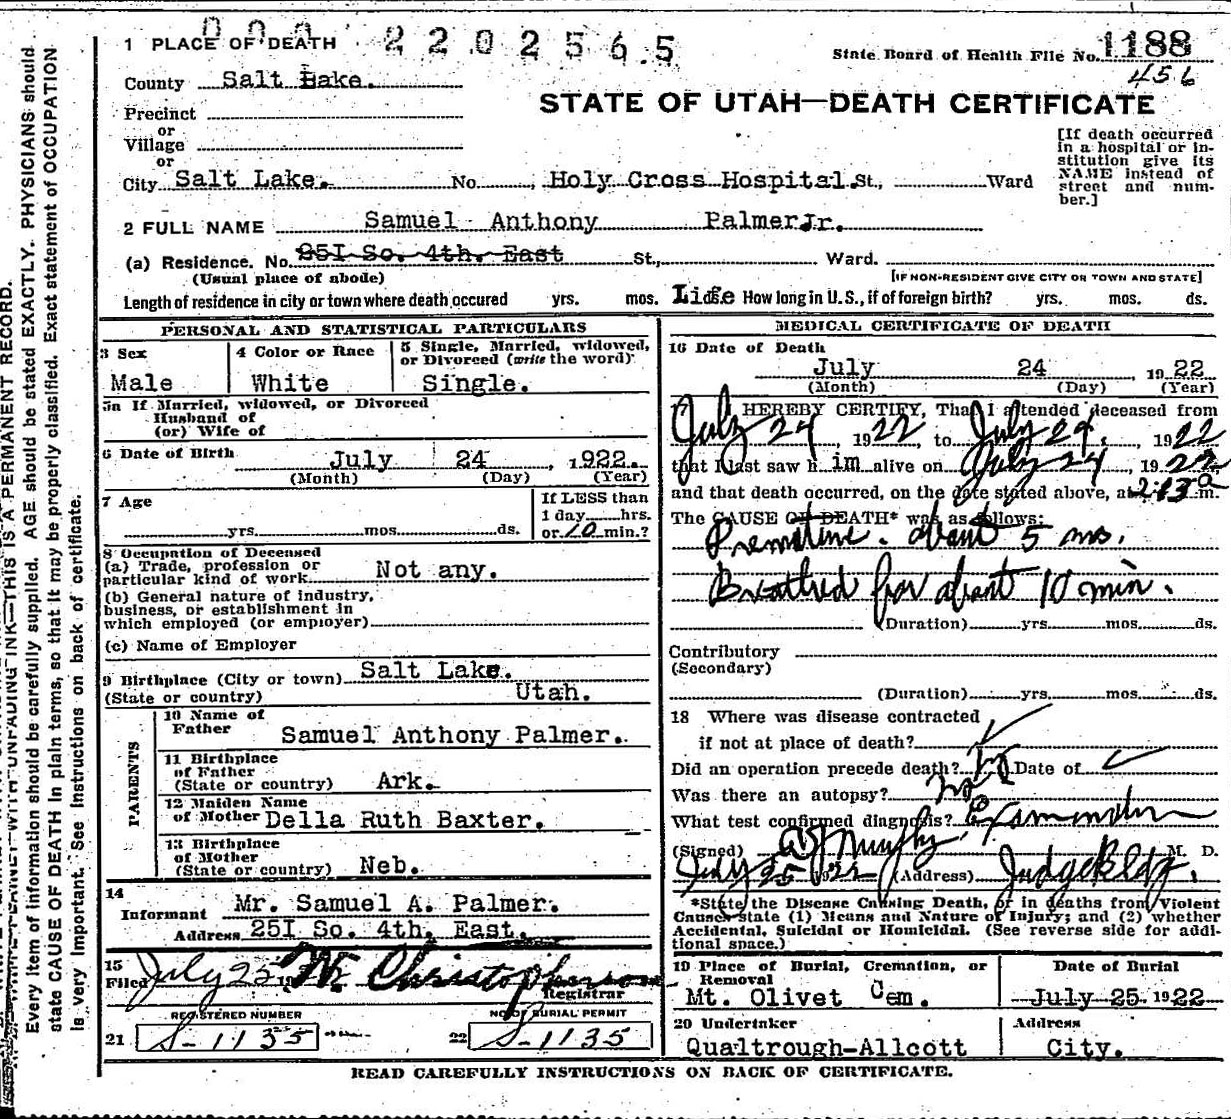 0 0 0 2 2 0 2 5 6 5
1 PLACE OF DEATH
State Board of Health File No. 1188
456
County Salt Lake.
STATE OF UTAH—DEATH CERTIFICATE
Precinct
or
Village
or
City Salt Lake. No. , Holy Cross Hospital. St., Ward
[If death occurred in a hospital or institution give its NAME instead of street and number.]
2 FULL NAME Samuel Anthony Palmer Jr.
(a) Residence. No. 251 So. 4th. East St., Ward.
(Usual place of abode) [IF NON-RESIDENT GIVE CITY OR TOWN AND STATE]
Length of residence in city or town where death occured yrs. mos. Life How long in U.S., if of foreign birth? yrs. mos. ds.
PERSONAL AND STATISTICAL PARTICULARS
3 Sex
Male
4 Color or Race
White
5 Single, Married, widowed,
or Divorced (write the word)
Single.
5a If Married, widowed, or Divorced
Husband of
(or) Wife of
6 Date of Birth July 24 , 1922.
(Month) (Day) (Year)
7 Age
yrs. mos. ds.
If LESS than
1 day hrs.
or 10 min.?
8 Occupation of Deceased
(a) Trade, profession or
particular kind of work Not any.
(b) General nature of industry,
business, or establishment in
which employed (or employer)
(c) Name of Employer
9 Birthplace (City or town) Salt Lake.
(State or country) Utah.
PARENTS
10 Name of
Father Samuel Anthony Palmer.
11 Birthplace
of Father
(State or country) Ark.
12 Maiden Name
of Mother Della Ruth Baxter.
13 Birthplace
of Mother
(State or country) Neb.
14
Informant Mr. Samuel A. Palmer.
Address 25I So. 4th. East.
15
Filed July 25 19 Christopherson
Registrar
REGISTERED NUMBER
21 S-1135
NO OF BURIAL PERMIT
22 S-1135
MEDICAL CERTIFICATE OF DEATH
16 Date of Death
July 24 1922
(Month) (Day) (Year)
17 I HEREBY CERTIFY, That I attended deceased from
July 24, 1922, to July 24, 1922
that I last saw h im alive on July 24, 1922
and that death occurred, on the date stated above, at 2:13 a m.
The CAUSE OF DEATH* was as follows:
Premature. about 5 mos.
Breathed for about 10 min.
(Duration) yrs. mos. ds.
Contributory
(Secondary)
(Duration) yrs. mos. ds.
18 Where was disease contracted
if not at place of death?
Did an operation precede death? no Date of
Was there an autopsy? no
What test confirmed diagnosis? Examination
(Signed) Murphy M. D.
July 25 1922 (Address) Judge Bldg.
*State the Disease Causing Death, or in deaths from Violent
Causes state (1) Means and Nature of Injury; and (2) whether
Accidental, Suicidal or Homicidal. (See reverse side for additional space.)
19 Place of Burial, Cremation, or
Removal
Mt. Olivet Cem.
Date of Burial
July 25 1922
20 Undertaker
Qualtrough-Allcott
Address
City.
READ CAREFULLY INSTRUCTIONS ON BACK OF CERTIFICATE.
THIS IS A PERMANENT RECORD.
Every item of information should be carefully supplied. AGE should be stated EXACTLY. PHYSICIANS should
state CAUSE OF DEATH in plain terms, so that it may be properly classified. Exact statement of OCCUPATION
is very important. See Instructions on back of certificate.